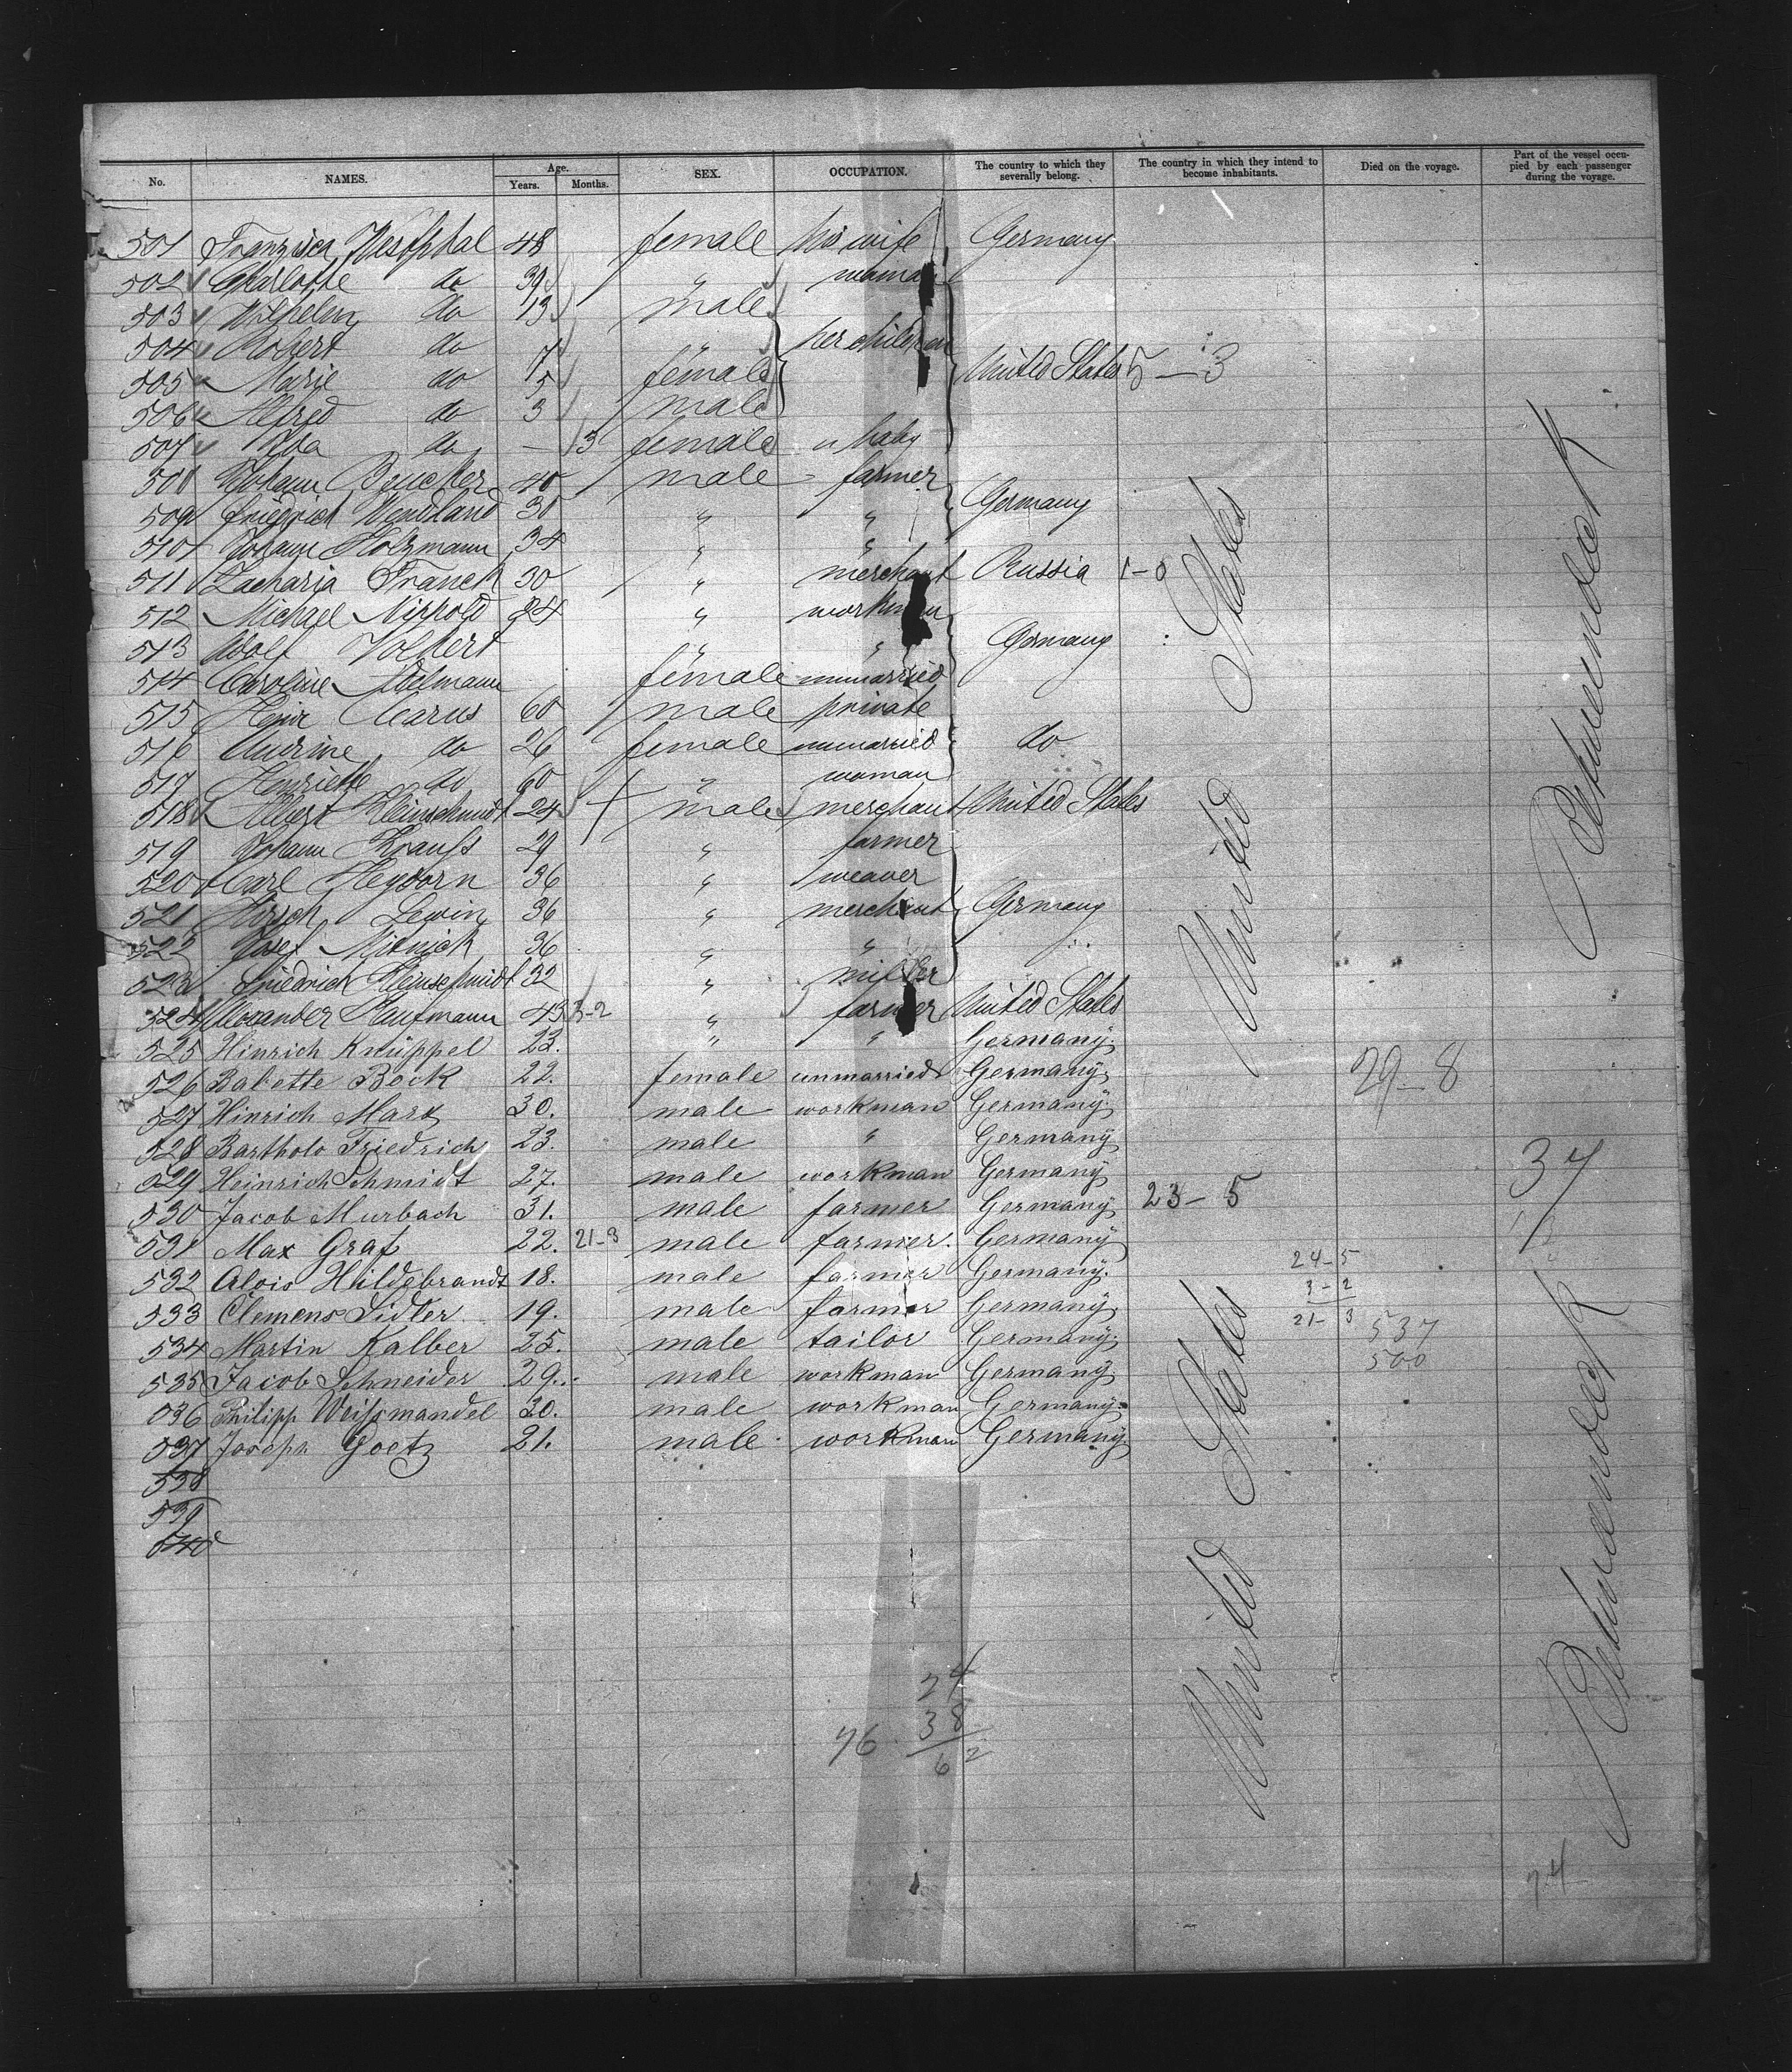 No. NAMES. Age. Years. Months. SEX. OCCUPATION. The country to which they severally belong. The country in which they intend to become inhabitants. Died on the voyage. Part of the vessel occupied by each passenger during the voyage.
501 Franzisca Westphal 48 female his wife Germany
502 Charlotte do 39 " woman
503 Wilhelm do 13 male
504 Robert do 7 " her children
505 Marie do 5 female United States 5-3
506 Alfred do 3 male
507 Ida do — 3 female a baby
508 Johann 40 male farmer
509 Friedrich Wendland 30 " " Germany
510 Johann Holzmann 34 " "
511 Zacharia Franck 30 " merchant Russia 1-0
512 Michael Nippold 24 " workman
513 Adolf Volkert " " Germany
514 Caroline female unmarried
515 Heinr 60 male private
516 do 26 female unmarried do
517 Henriette do 60 " woman
518 Albert Kleinschmidt 24 male merchant United States
519 Johann Krauss 29 " farmer
520 Carl Heydorn 36 " weaver
521 Hirsch Lewin 36 " merchant Germany
522 Josef 36 " "
523 Friedrich Kleinschmidt 32 " miller
524 Alexander Kaufmann 43 3-2 " farmer United States
525 Hinrich Knüppel 23. " " Germany.
526 Babette Bock 22. female unmarried Germany.
527 Hinrich Marx 30. male workman Germany.
528 Bartholo Friedrich 23. male " Germany
529 Heinrich Schmidt 27. male workman Germany
530 Jacob Murbach 31. male farmer Germany 23-5
531 Max Graf 22. 21-3 male farmer. Germany
532 Alois Hildebrandt 18. male farmer Germany.
533 Clemens Sidler 19. male farmer Germany.
534 Martin Kalber 25. male tailor Germany.
535 Jacob Schneider 29. male workman Germany
536 Philipp Weißmandel 30. male workman Germany.
537 Joseph Goetz 21. male workman Germany
538
539
540
United States
United States
29-8
37
24-5
3-2
21-3
537
500
24
38
62
76
74